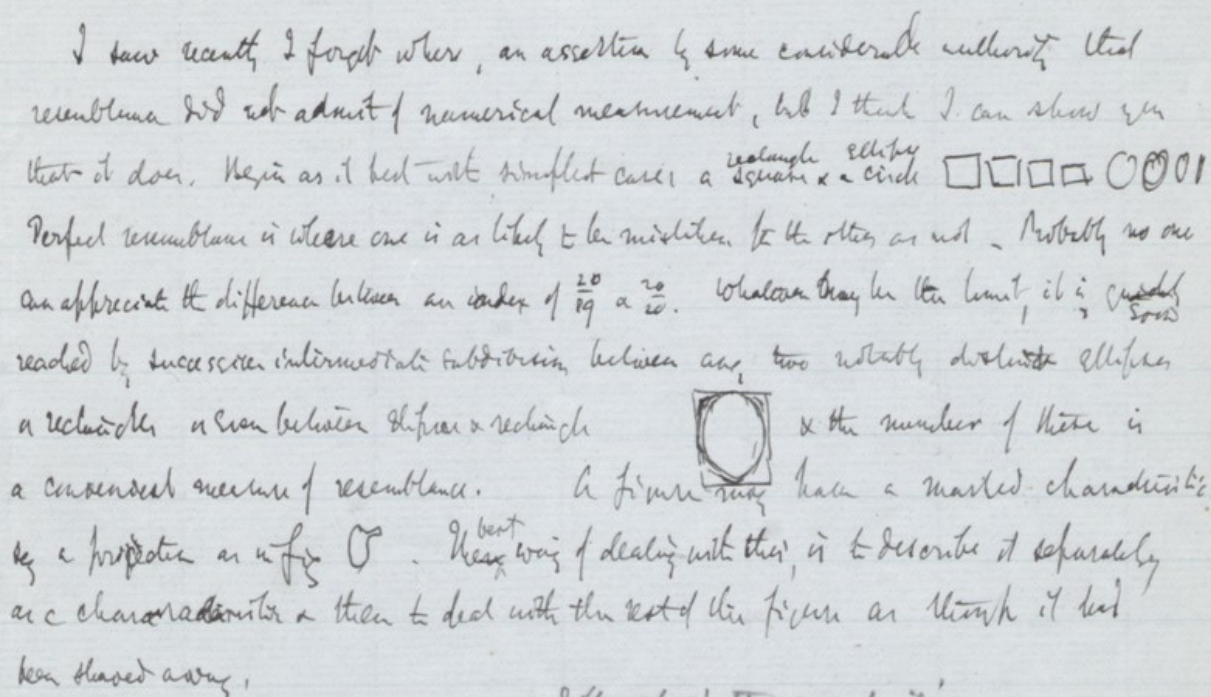 I saw recently I forget where, an assertion by some considerable authority that
resemblance did not admit of numerical measurement, but I think I can show you
that it does. Begin as is best with simplest cases a rectangle ellipse square & a circle
Perfect resemblance is where one is as likely to be mistaken for the other as not _ Probably no one
can appreciate the difference between an index of 20/19 & 20/20. Whatever may be the limit, it is soon
reached by successive intermediate subdivision between any two notably distinct ellipses
or rectangles or even between ellipses & rectangle & the number of these is
a convenient measure of resemblance. A figure may have a marked characteristic
say a projection as in fig . The best way of dealing with this, is to describe it separately
as a characteristic & then to deal with the rest of the figure as though it had
been shaved away.